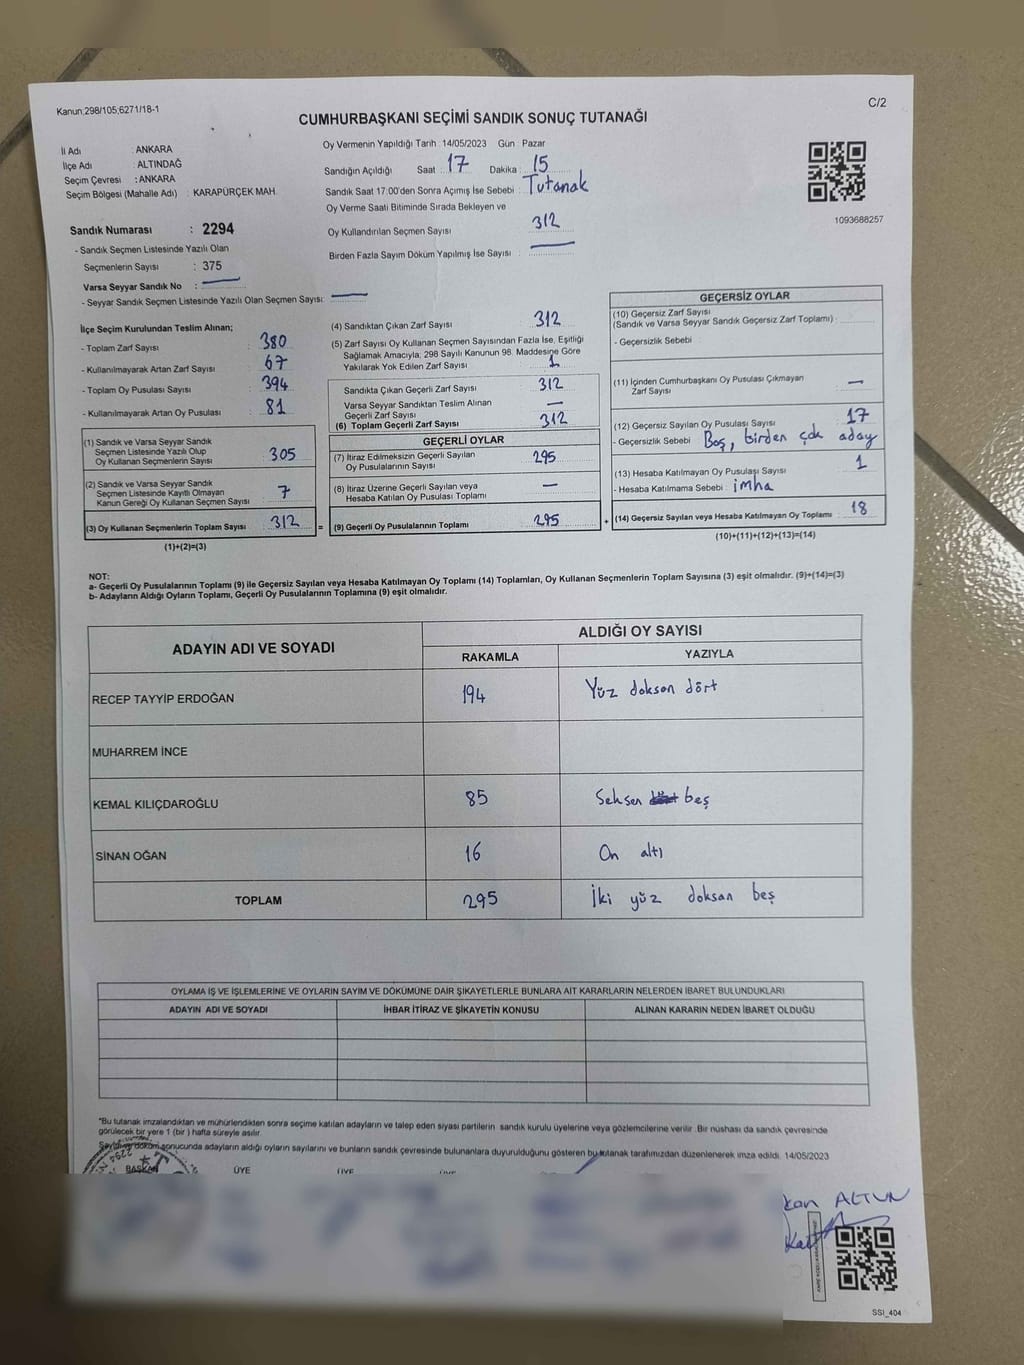 Kanun:298/105;6271/18-1
C/2
CUMHURBAŞKANI SEÇİMİ SANDIK SONUÇ TUTANAĞI
İl Adı : ANKARA
İlçe Adı : ALTINDAĞ
Seçim Çevresi : ANKARA
Seçim Bölgesi (Mahalle Adı) : KARAPÜRÇEK MAH.
Sandık Numarası : 2294
- Sandık Seçmen Listesinde Yazılı Olan
Seçmenlerin Sayısı : 375
Varsa Seyyar Sandık No :
- Seyyar Sandık Seçmen Listesinde Yazılı Olan Seçmen Sayısı:
Oy Vermenin Yapıldığı Tarih : 14/05/2023 Gün : Pazar
Sandığın Açıldığı Saat : 17 Dakika : 15
Sandık Saat 17:00'den Sonra Açımış İse Sebebi : Tutanak
Oy Verme Saati Bitiminde Sırada Bekleyen ve
Oy Kullandırılan Seçmen Sayısı : 312
Birden Fazla Sayım Döküm Yapılmış İse Sayısı :
1093688257
İlçe Seçim Kurulundan Teslim Alınan;
- Toplam Zarf Sayısı : 380
- Kullanılmayarak Artan Zarf Sayısı : 67
- Toplam Oy Pusulası Sayısı : 394
- Kullanılmayarak Artan Oy Pusulası : 81
(1) Sandık ve Varsa Seyyar Sandık
Seçmen Listesinde Yazılı Olup
Oy Kullanan Seçmenlerin Sayısı : 305
(2) Sandık ve Varsa Seyyar Sandık
Seçmen Listesinde Kayıtlı Olmayan
Kanun Gereği Oy Kullanan Seçmen Sayısı : 7
(3) Oy Kullanan Seçmenlerin Toplam Sayısı : 312 =
(1)+(2)=(3)
(4) Sandıktan Çıkan Zarf Sayısı : 312
(5) Zarf Sayısı Oy Kullanan Seçmen Sayısından Fazla İse, Eşitliği
Sağlamak Amacıyla, 298 Sayılı Kanunun 98. Maddesine Göre
Yakılarak Yok Edilen Zarf Sayısı : 1
Sandıkta Çıkan Geçerli Zarf Sayısı : 312
Varsa Seyyar Sandıktan Teslim Alınan
Geçerli Zarf Sayısı : —
(6) Toplam Geçerli Zarf Sayısı : 312
GEÇERLİ OYLAR
(7) İtiraz Edilmeksizin Geçerli Sayılan
Oy Pusulalarının Sayısı : 295
(8) İtiraz Üzerine Geçerli Sayılan veya
Hesaba Katılan Oy Pusulası Toplamı : —
(9) Geçerli Oy Pusulalarının Toplamı : 295 +
GEÇERSİZ OYLAR
(10) Geçersiz Zarf Sayısı
(Sandık ve Varsa Seyyar Sandık Geçersiz Zarf Toplamı) :
- Geçersizlik Sebebi
(11) İçinden Cumhurbaşkanı Oy Pusulası Çıkmayan
Zarf Sayısı : —
(12) Geçersiz Sayılan Oy Pusulası Sayısı : 17
- Geçersizlik Sebebi : Boş, birden çok aday
(13) Hesaba Katılmayan Oy Pusulası Sayısı : 1
- Hesaba Katılmama Sebebi : imha
(14) Geçersiz Sayılan veya Hesaba Katılmayan Oy Toplamı : 18
(10)+(11)+(12)+(13)=(14)
NOT:
a- Geçerli Oy Pusulalarının Toplamı (9) ile Geçersiz Sayılan veya Hesaba Katılmayan Oy Toplamı (14) Toplamları, Oy Kullanan Seçmenlerin Toplam Sayısına (3) eşit olmalıdır. (9)+(14)=(3)
b- Adayların Aldığı Oyların Toplamı, Geçerli Oy Pusulalarının Toplamına (9) eşit olmalıdır.
ADAYIN ADI VE SOYADI
ALDIĞI OY SAYISI
RAKAMLA YAZIYLA
RECEP TAYYİP ERDOĞAN 194 Yüz doksan dört
MUHARREM İNCE
KEMAL KILIÇDAROĞLU 85 Seksen beş
SİNAN OĞAN 16 On altı
TOPLAM 295 İki yüz doksan beş
OYLAMA İŞ VE İŞLEMLERİNE VE OYLARIN SAYIM VE DÖKÜMÜNE DAİR ŞİKAYETLERLE BUNLARA AİT KARARLARIN NELERDEN İBARET BULUNDUKLARI
ADAYIN ADI VE SOYADI İHBAR İTİRAZ VE ŞİKAYETİN KONUSU ALINAN KARARIN NEDEN İBARET OLDUĞU
*Bu tutanak imzalandıktan ve mühürlendikten sonra seçime katılan adayların ve talep eden siyasi partilerin sandık kurulu üyelerine veya gözlemcilerine verilir. Bir nüshası da sandık çevresinde
görülecek bir yere 1 (bir) hafta süreyle asılır.
Sayım ve döküm sonucunda adayların aldığı oyların sayılarını ve bunların sandık çevresinde bulunanlara duyurulduğunu gösteren bu tutanak tarafımızdan düzenlenerek imza edildi. 14/05/2023
2294
BAŞKAN ÜYE ÜYE ÜYE
kan ALTUN
SSI_404